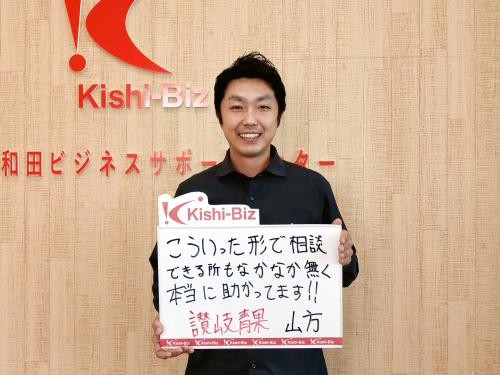 Kishi-Biz
和田ビジネスサポー ター
Kishi-Biz
こういった形で相談
できる所もなかなか無く
本当に助かってます!!
讃岐青果 山方
Kishi-Biz Kishi-Biz Kishi-Biz Kishi-Biz Kishi-Biz Kishi-Biz